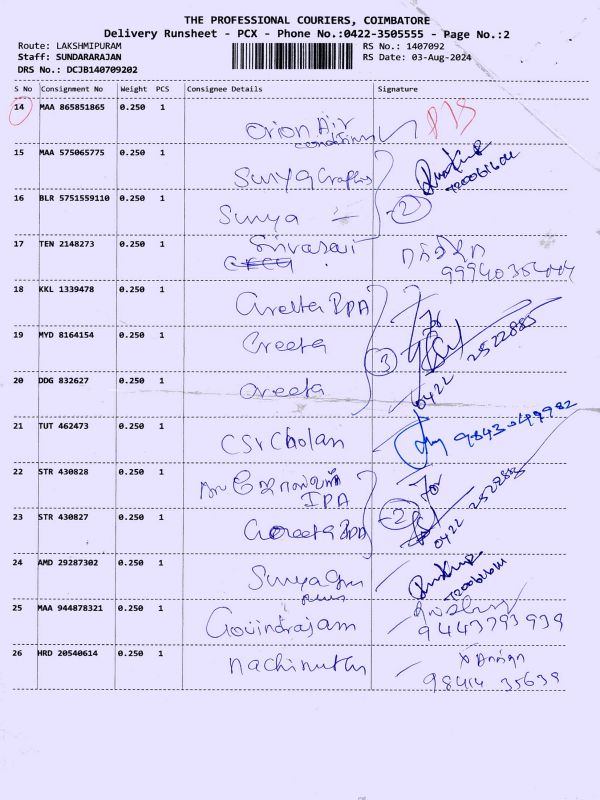 THE PROFESSIONAL COURIERS, COIMBATORE
Delivery Runsheet - PCX - Phone No.:0422-3505555 - Page No.:2
Route: LAKSHMIPURAM RS No.: 1407092
Staff: SUNDARARAJAN RS Date: 03-Aug-2024
DRS No.: DCJB140709202
S No Consignment No Weight PCS Consignee Details Signature
14 MAA 865851865 0.250 1 Orion Air
conditions
15 MAA 575065775 0.250 1 Surya Graphics
16 BLR 5751559110 0.250 1 Surya 2
17 TEN 2148273 0.250 1 Srivasai
18 KKL 1339478 0.250 1 IPA For
19 MYD 8164154 0.250 1 Greeta 3 2522885
20 DDG 832627 0.250 1 Greeta 0422
21 TUT 462473 0.250 1 CSr Cholan
22 STR 430828 0.250 1 For
IPA
23 STR 430827 0.250 1 Greeta IPA 2 0422
24 AMD 29287302 0.250 1 Surya
25 MAA 944878321 0.250 1 Govindrajam
9443793939
26 HRD 20540614 0.250 1 Nachimuthu
98414 35639